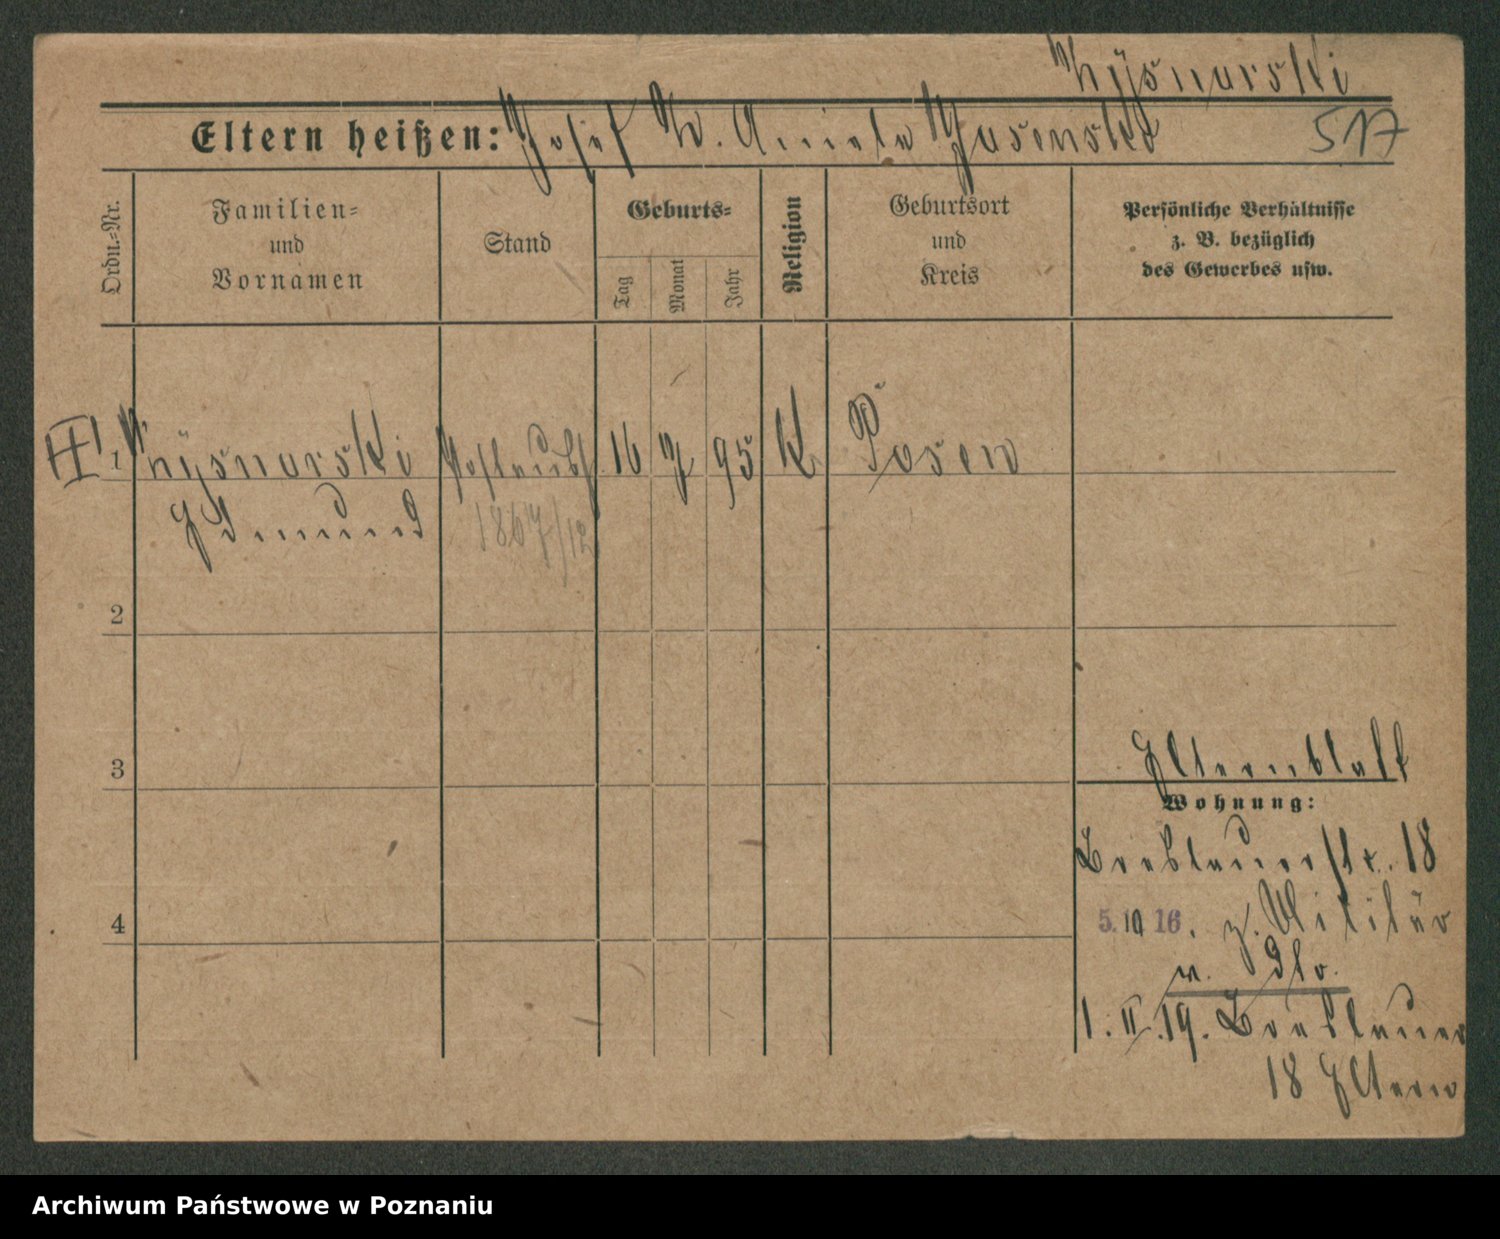 Eltern heißen: Josef u. Aniela Jasenska
517
Ordn.-Nr.
Familien-
und
Vornamen
Stand
Geburts-
Tag
Monat
Jahr
Religion
Geburtsort
und
Kreis
Persönliche Verhältnisse
z. B. bezüglich
des Gewerbes usw.
1
16 7 95 K Posen
Edmund
1867/12
2
3
Elternblatt
Wohnung:
Breslauerstr. 18
4
5. 10 16. z. Militär
1. II. 19. Breslauer
18 Eltern
Archiwum Państwowe w Poznaniu